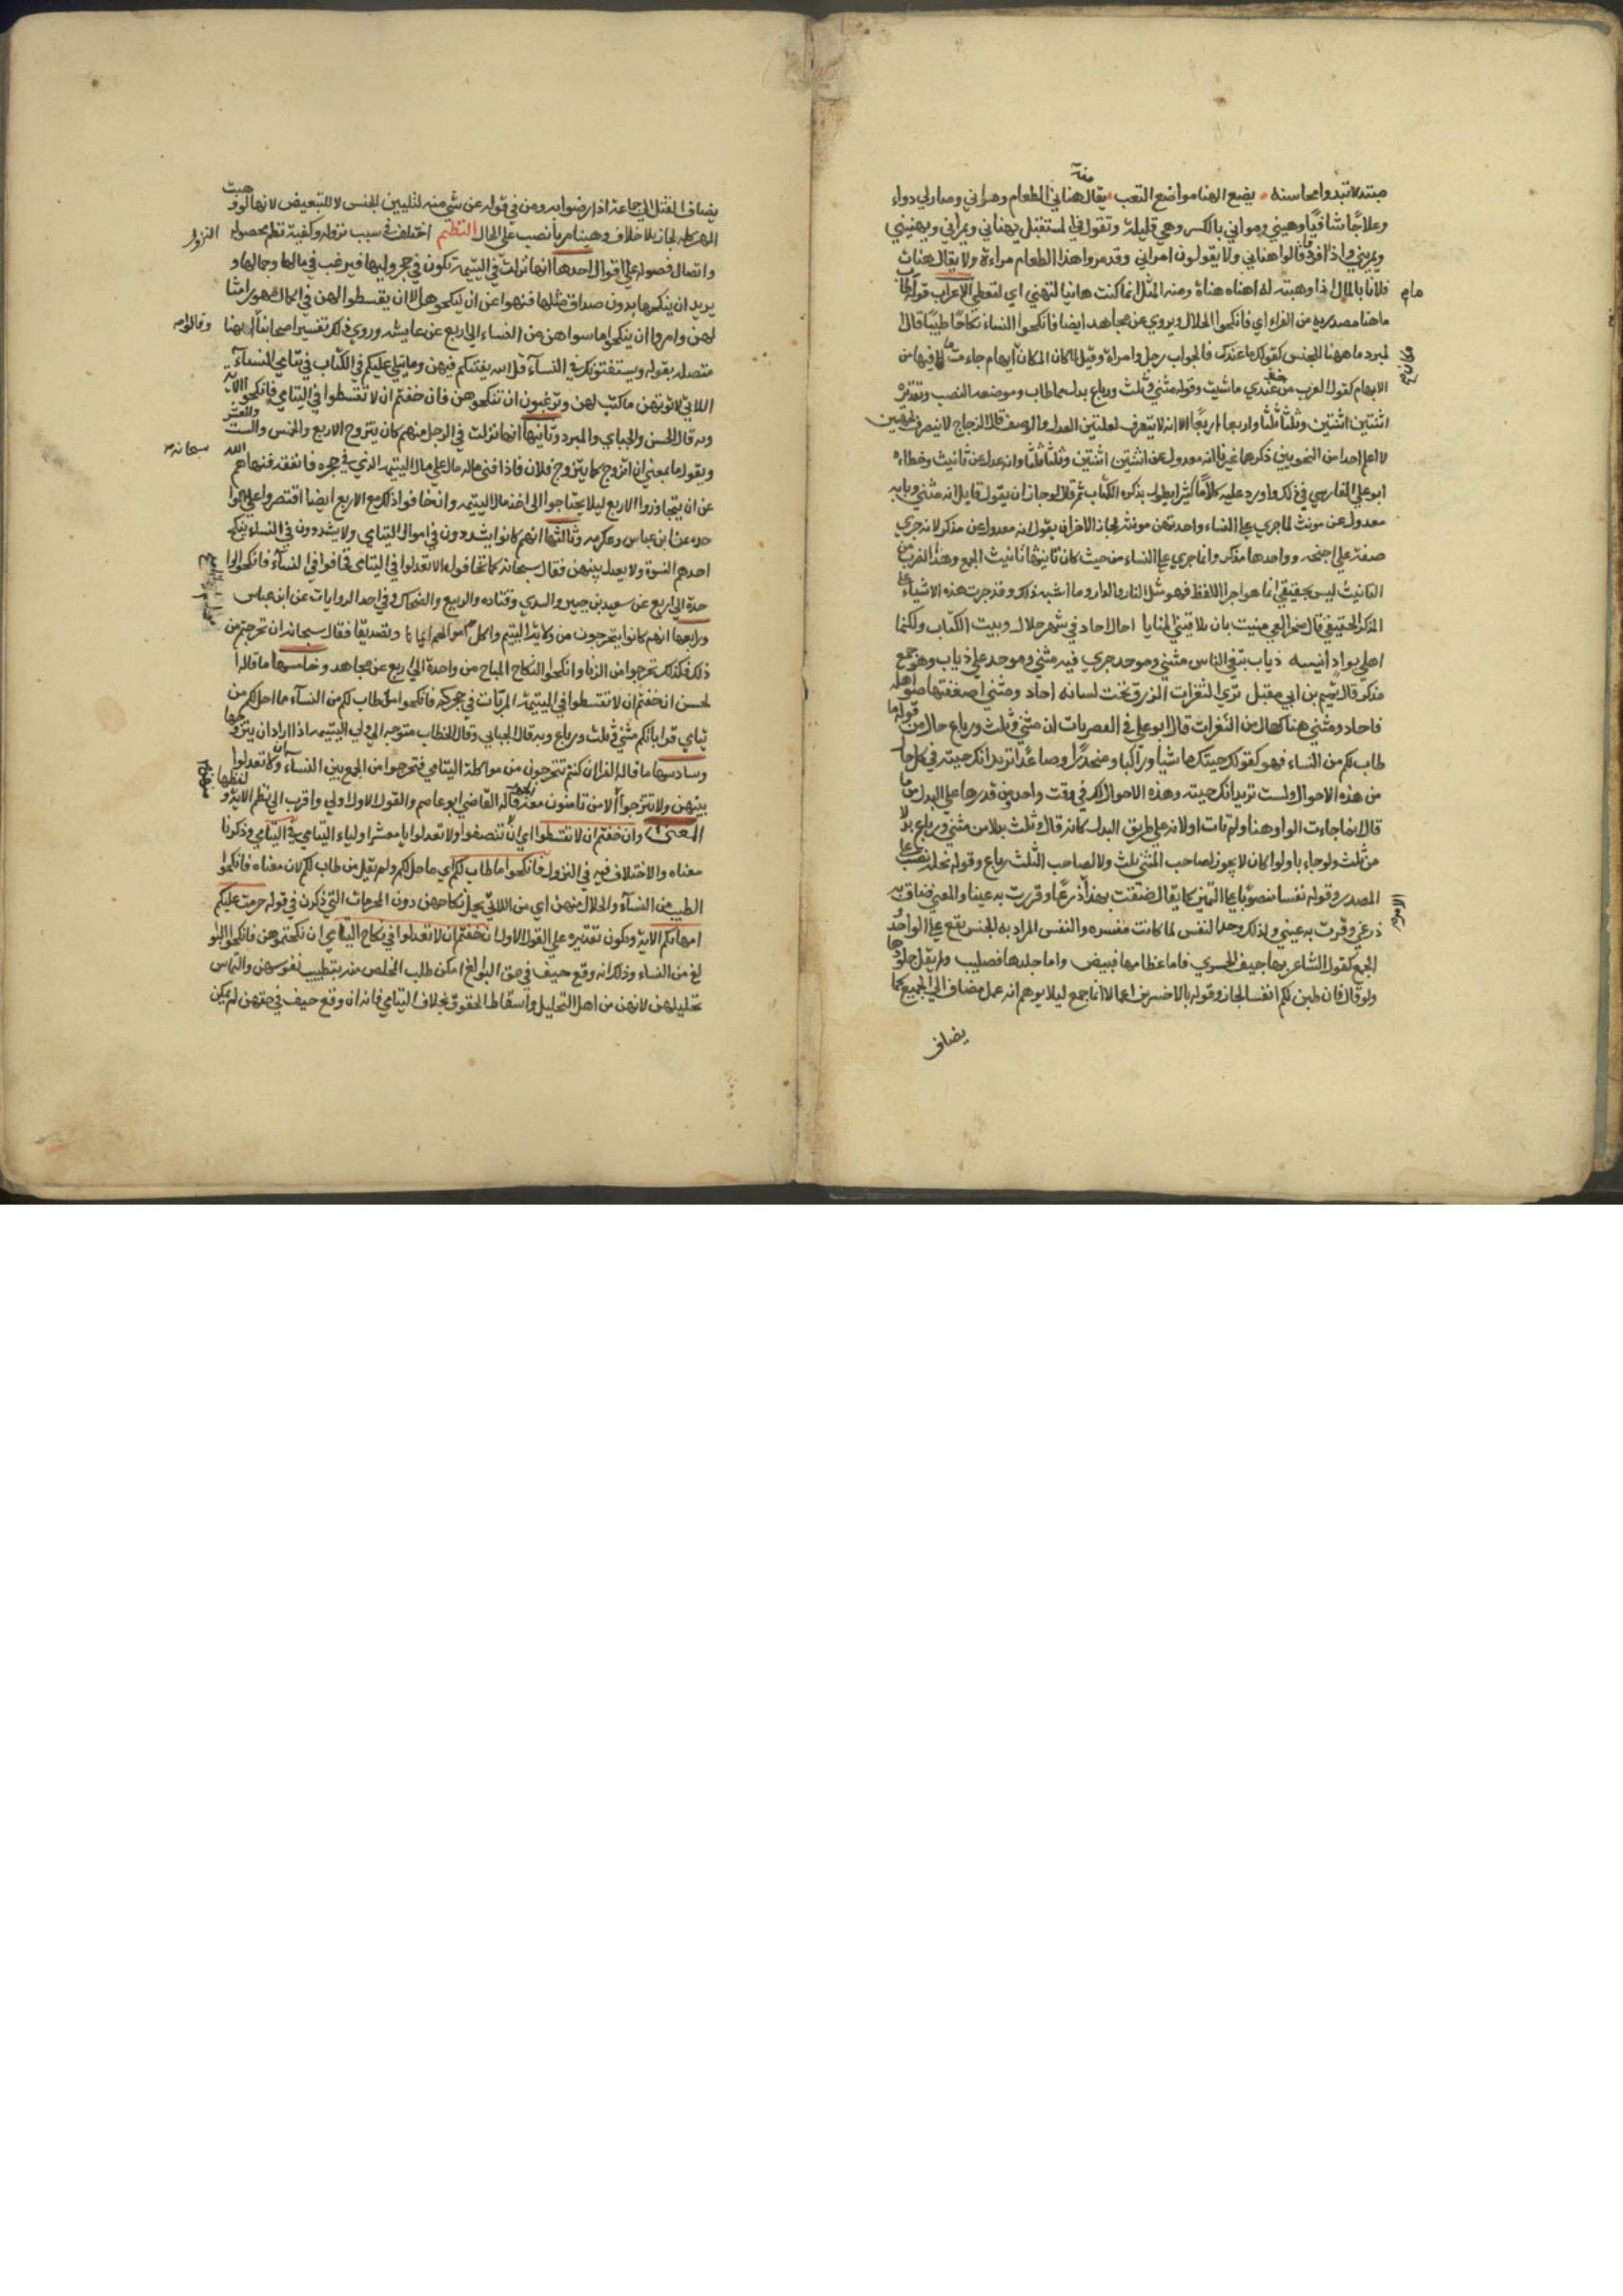 مبتدلا تبدوا محاسنه يضع الهنا مواضع النقب يقال منه هناني الطعام ومراني وصار لي دواء
وعلاجا شافيا وهيني ومراني بالكسر وهي قليلة وتقول في المستقبل يهناني ويمراني ويهنيني
ويمريني فاذا افردوا قالوا هناني ولا يقولون امراني وقد مرو هذا الطعام مراءة ولا يقال هنات
فلانا بالمال اذا وهبته له اهناه هناة ومنه المثل انما كنت هانيا لتهني اي لتعطي الاعراب قوله ما طاب
ما هنا مصدريه عن الفراء اي فانكحوا الحلال ويروي عن مجاهد ايضا فانكحوا النساء نكاحا طيبا قال
لمبرد ما ههنا للجنس كقولك ما عندك فالجواب رجل وامراة وقيل لما كان المكان ابهام جاءت ما لما فيها من
الابهام كقول العرب خذ من عندي ما شيت وقوله مثني وثلث ورباع بدل مما طاب وموضعه النصب وتقديره
اثنتين اثنتين وثلثا ثلثا واربعا اربعا الا انه لا ينصرف لعلتين العدل والوصف قال الزجاج لا ينصرف لجهتين
لا اعلم احدا من النحويين ذكرهما غير انه معدول عن اثنتين اثنتين وثلثا ثلثا وانه عدل عن تانيث وخطاه
ابو علي الفارسي في ذلك واورد عليه كلاما كثيرا يطول بذكره الكتاب ثم قال لو جاز ان يقول قايل انه مثني وبابه
معدول عن مونث لما جري علي النساء واحدتهن مونثة لجاز لاخر ان يقول انه معدول عن مذكر لانه جري
صفة علي اجنحه وواحدها مذكر وانما جري علي النساء من حيث كان تانيثها تانيث الجمع وهذا الضرب من
التانيث ليس بحقيقي انما هو اجرا اللفظ فهو مثل النار والدار وما اشبه ذلك وقد جرت هذه الاشياء علي
المذكر الحقيقي قال صخر الغي منيت بان يلاقيني المنايا احاد احاد في شهر حلال وبيت الكتاب ولكنما
اهلي بواد انيسه ذياب تبغي الناس مثني وموحد جري فيه مثني وموحد علي ذياب وهو جمع
مذكر قال تميم بن ابي مقبل تري النغرات الزرق تحت لبانه احاد ومثني اصعقتها صواهله
فاحاد ومثني هنا حال من النغرات قال ابو علي في القصريات ان مثني وثلث ورباع حال من قوله ما
طاب لكم من النساء فهو كقولك جيتك ماشيا وراكبا ومنحدرا وصاعدا تريد انك جيته في كل حال
من هذه الاحوال ولست تريد انك جيته وهذه الاحوال لك في وقت واحد ومن قدرها علي البدل من ما
قال انما جاءت الواو هنا ولم تات او لانه علي طريق البدل كانه قال وثلث بدلا من مثني ورباع بدلا
من ثلث ولو جاء باو لكان لا يجوز لصاحب المثني ثلث ولا لصاحب الثلث رباع وقوله نحلة نصب علي
المصدر وقوله نفسا منصوبا علي التميز كما يقال ضقت بهذا ذرعا وقررت به عينا والمعني ضاق به
ذرعي وقرت به عيني ولذلك وحد النفس لما كانت مفسره والنفس المراد به الجنس يقع علي الواحد
الجمع كقول الشاعر بها جيف الحسري فاما عظامها فبيض واما جلدها فصليب ولم يقل جلودها
ولو قال فان طبن لكم انفسا لجاز وقوله بالاخسرين اعمالا انما جمع ليلا يوهم انه عمل مضاف الي الجميع كما
يضاف
يضاف القتل الي جماعة اذا رضوا به ومن في قوله عن شي منه لتليين الجنس لا للتبعيض لانها لو وهبت
المهر كله لجاز بلا خلاف وهنيا مريا نصب علي الحال النظم اختلف في سبب نزوله وكيفية نظم محصوله
النزول
واتصال فصوله علي اقوال احدها انها نزلت في اليتيمة تكون في حجر وليها فيرغب في مالها وجمالها و
يريد ان ينكحها بدون صداق مثلها فنهوا عن ان ينكحوهن الا ان يقسطوا لهن في اكمال مهور امثا
لهن وامروا ان ينكحوا ما سواهن من النساء الي اربع عن عايشة وروي ذلك في تفسير اصحابنا انها
وقالوا
متصله بقوله ويستفتونك في النسآء قل الله يفتيكم فيهن وما يتلي عليكم في الكتاب في يتامي النسآء
اللاتي لا تؤتهن ما كتب لهن وترغبون ان تنكحوهن فان خفتم ان لا تقسطوا في اليتامي فانكحوا الاية
وبه قال الحسن والجباي والمبرد وثانيها انها نزلت في الرجل منهم كان يتزوج الاربع والخمس والست والعشر
ويقول ما يمعني ان اتزوج كما يتزوج فلان فاذا فني ماله مال علي مال اليتيم الذي في حجره فانفقه فنهاهم الله
سبحانه
عن ان يتجاوزوا الاربع ليلا يحتاجوا الي اخذ مال اليتيم وان خافوا ذلك مع الاربع ايضا اقتصروا علي
حده عن ابن عباس وعكرمه وثالثها انهم كانوا يشددون في اموال اليتامي ولا يشددون في النساء ينكح
احدهم النسوة ولا يعدل بينهن فقال سبحانه كما تخافون الا تعدلوا في اليتامي فخافوا في النساء فانكحوا وا
حدة الي اربع عن سعيد بن جبير والسدي وقتاده والربيع والضحاك وفي احد الروايات عن ابن عباس
ورابعها انهم كانوا يتحرجون من ولاية اليتيم واكل اموالهم ايمانا وتصديقا فقال سبحانه ان تحرجتم من
ذلك فكذلك تحرجوا من الزنا وانكحوا النكاح المباح من واحدة الي اربع عن مجاهد وخامسها ما قاله ا
لحسن ان خفتم ان لا تقسطوا في اليتيمة المرباة في حجركم فانكحوا ما طاب لكم من النسآء ما احل لكم من
يتامي قراباتكم مثني وثلث ورباع وبه قال الجبايي وقال الخطاب متوجه الي ولي اليتيمه اذا اراد ان يتزوجها
وسادسها ما قاله الفراء ان كنتم تتحرجون من مواكلة اليتامي فتحرجوا من الجمع بين النساء وان لا تعدلوا
بينهن ولا تتزوجوا الا من تامنون معه قاله القاضي ابو عاصم والقول الاول اولي واقرب الي نظم الاية و لفظها
المعني وان خفتم ان لا تقسطوا اي ان لا تنصفوا ولا تعدلوا يا معشر اولياء اليتامي في اليتامي وذكرنا
معناه والاختلاف فيه في النزول فانكحوا ما طاب لكم اي ما حل لكم ولم يقل من طاب لكم لان معناه فانكحوا
الطيب من النسآء والحلال منهن اي من اللاتي يحل نكاحهن دون المحرمات التي ذكرن في قوله حرمت عليكم
امهاتكم الاية ويكون تقديره علي القول الاول ان خفتم ان لا تعدلوا في نكاح اليتامي ان نكحتموهن فانكحوا البوا
لغ من النساء وذلك انه وقع حيف في حق البوالغ امكن طلب المخلص منه بتطييب نفوسهن والتماس
تحليلهن لانهن من اهل التحليل واسقاط الحقوق بخلاف اليتامي فانه ان وقع حيف في حقهن لم يمكن